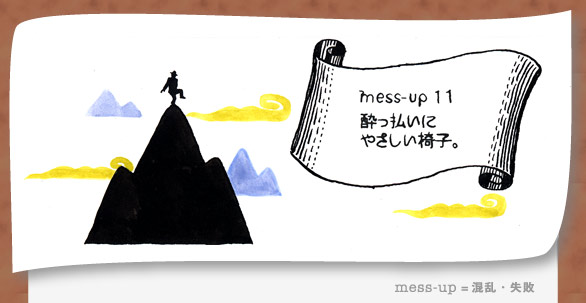 mess-up 11
酔っ払いに
やさしい椅子。
mess-up = 混乱・失敗